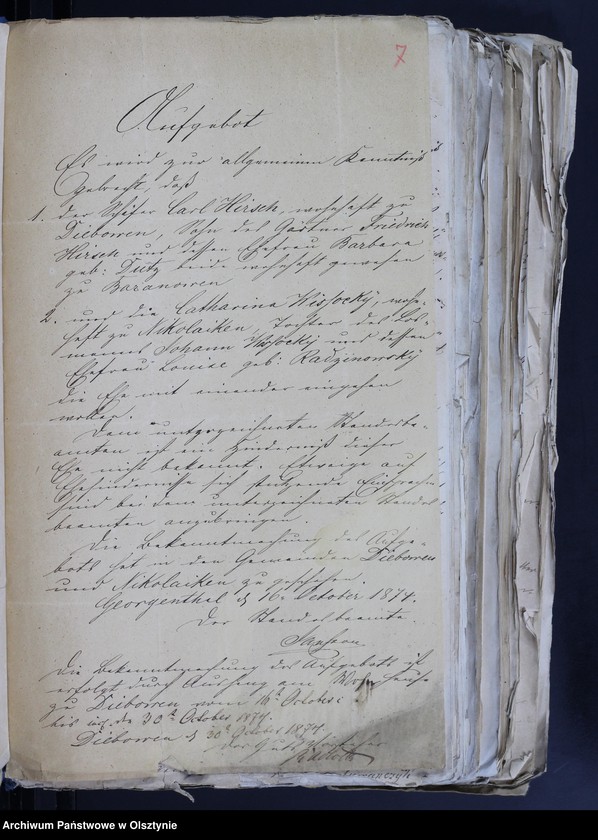 7
Aufgebot
Es wird zur allgemeinen Kenntniß
gebracht, daß
1. der Schäfer Carl Hirsch, wohnhaft zu
Diebowen, Sohn des Gärtner Friedrich
Hirsch und dessen Ehefrau Barbara
geb: Dutz beide wohnhaft gewesen
zu Baranowen
2. und die Catharina Wissocky, wohn-
haft zu Nikolaiken, Tochter des Los-
manns Johann Wissocky und dessen
Ehefrau Louise geb: Radzinowsky
die Ehe mit einander eingehen
wollen.
Dem unterzeichneten Standesbe-
amten ist ein Hinderniß dieser
Ehe nicht bekannt. Etwaige auf
Ehehindernisse sich stützende Einsprachen
sind bei dem unterzeichneten Standes
beamten anzubringen.
Die Bekanntmachung des Aufge-
bots hat in den Gemeinden Diebowen
und Nikolaiken zu geschehen.
Georgenthal d 16. October 1874.
Der Standesbeamte.
Die Bekanntmachung des Aufgebots ist
erfolgt durch Aushang am
zu Diebowen vom 16t October
bis incl. den 30t October 1874.
Diebowen d 30t October 1874.
Der Gutsvorsteher
Archiwum Państwowe w Olsztynie